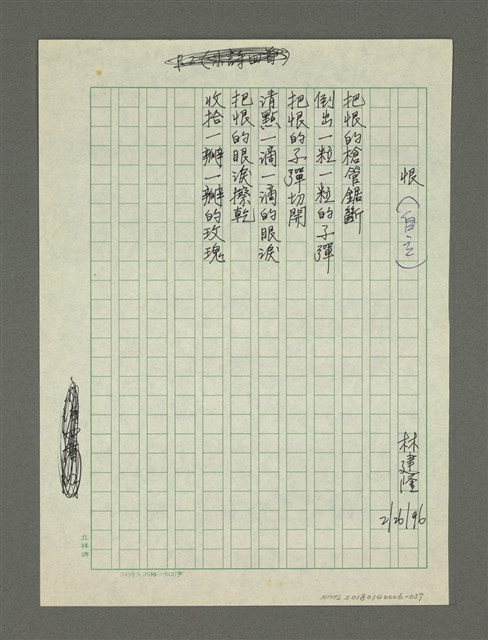 恨(自立)
林建隆
2/26/96
把恨的槍管鋸斷
倒出一粒一粒的子彈
把恨的子彈切開
清點一滴一滴的眼淚
把恨的眼淚擦乾
收拾一瓣一瓣的玫瑰
NMTL20180140006-037